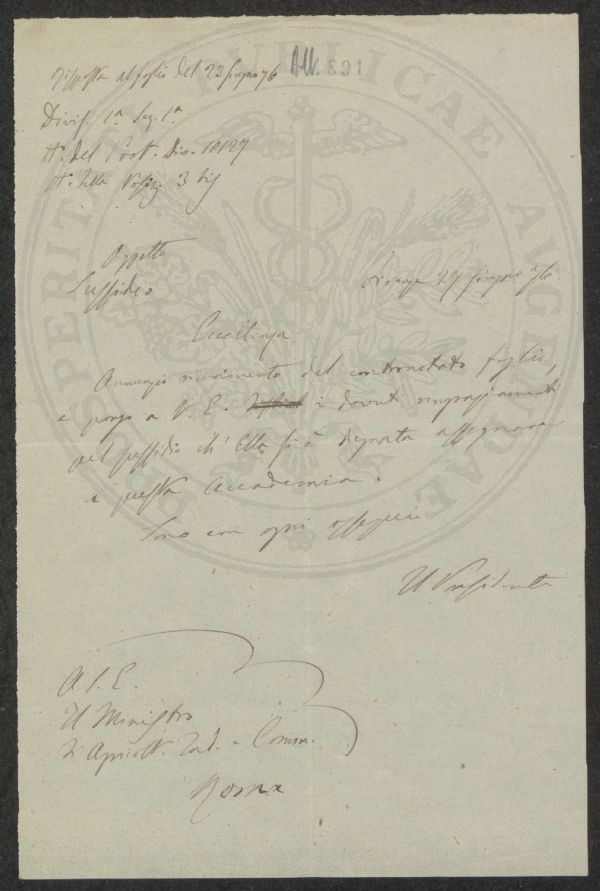 Risposta al foglio del 22 Giugno 76 All. 391
Divis. 1ª Sez. 1ª
N. del Prot. Div. 10127
N. della Posiz. 3 bis
Oggetto
Sussidio
Firenze 29 Giugno 76
Eccellenza
Annunzio ricevimento del controndtato foglio,
e porgo a V. E. i dovuti ringraziamenti
pel sussidio ch' Ella si è degnata assegnare
a questa Accademia.
Sono con ogni ossequio
Il Presidente
A S. E.
Il Ministro
di Agricolt. Ind. e Comm.
Roma
PROSPERITATI PUBLICAE AUGENDAE